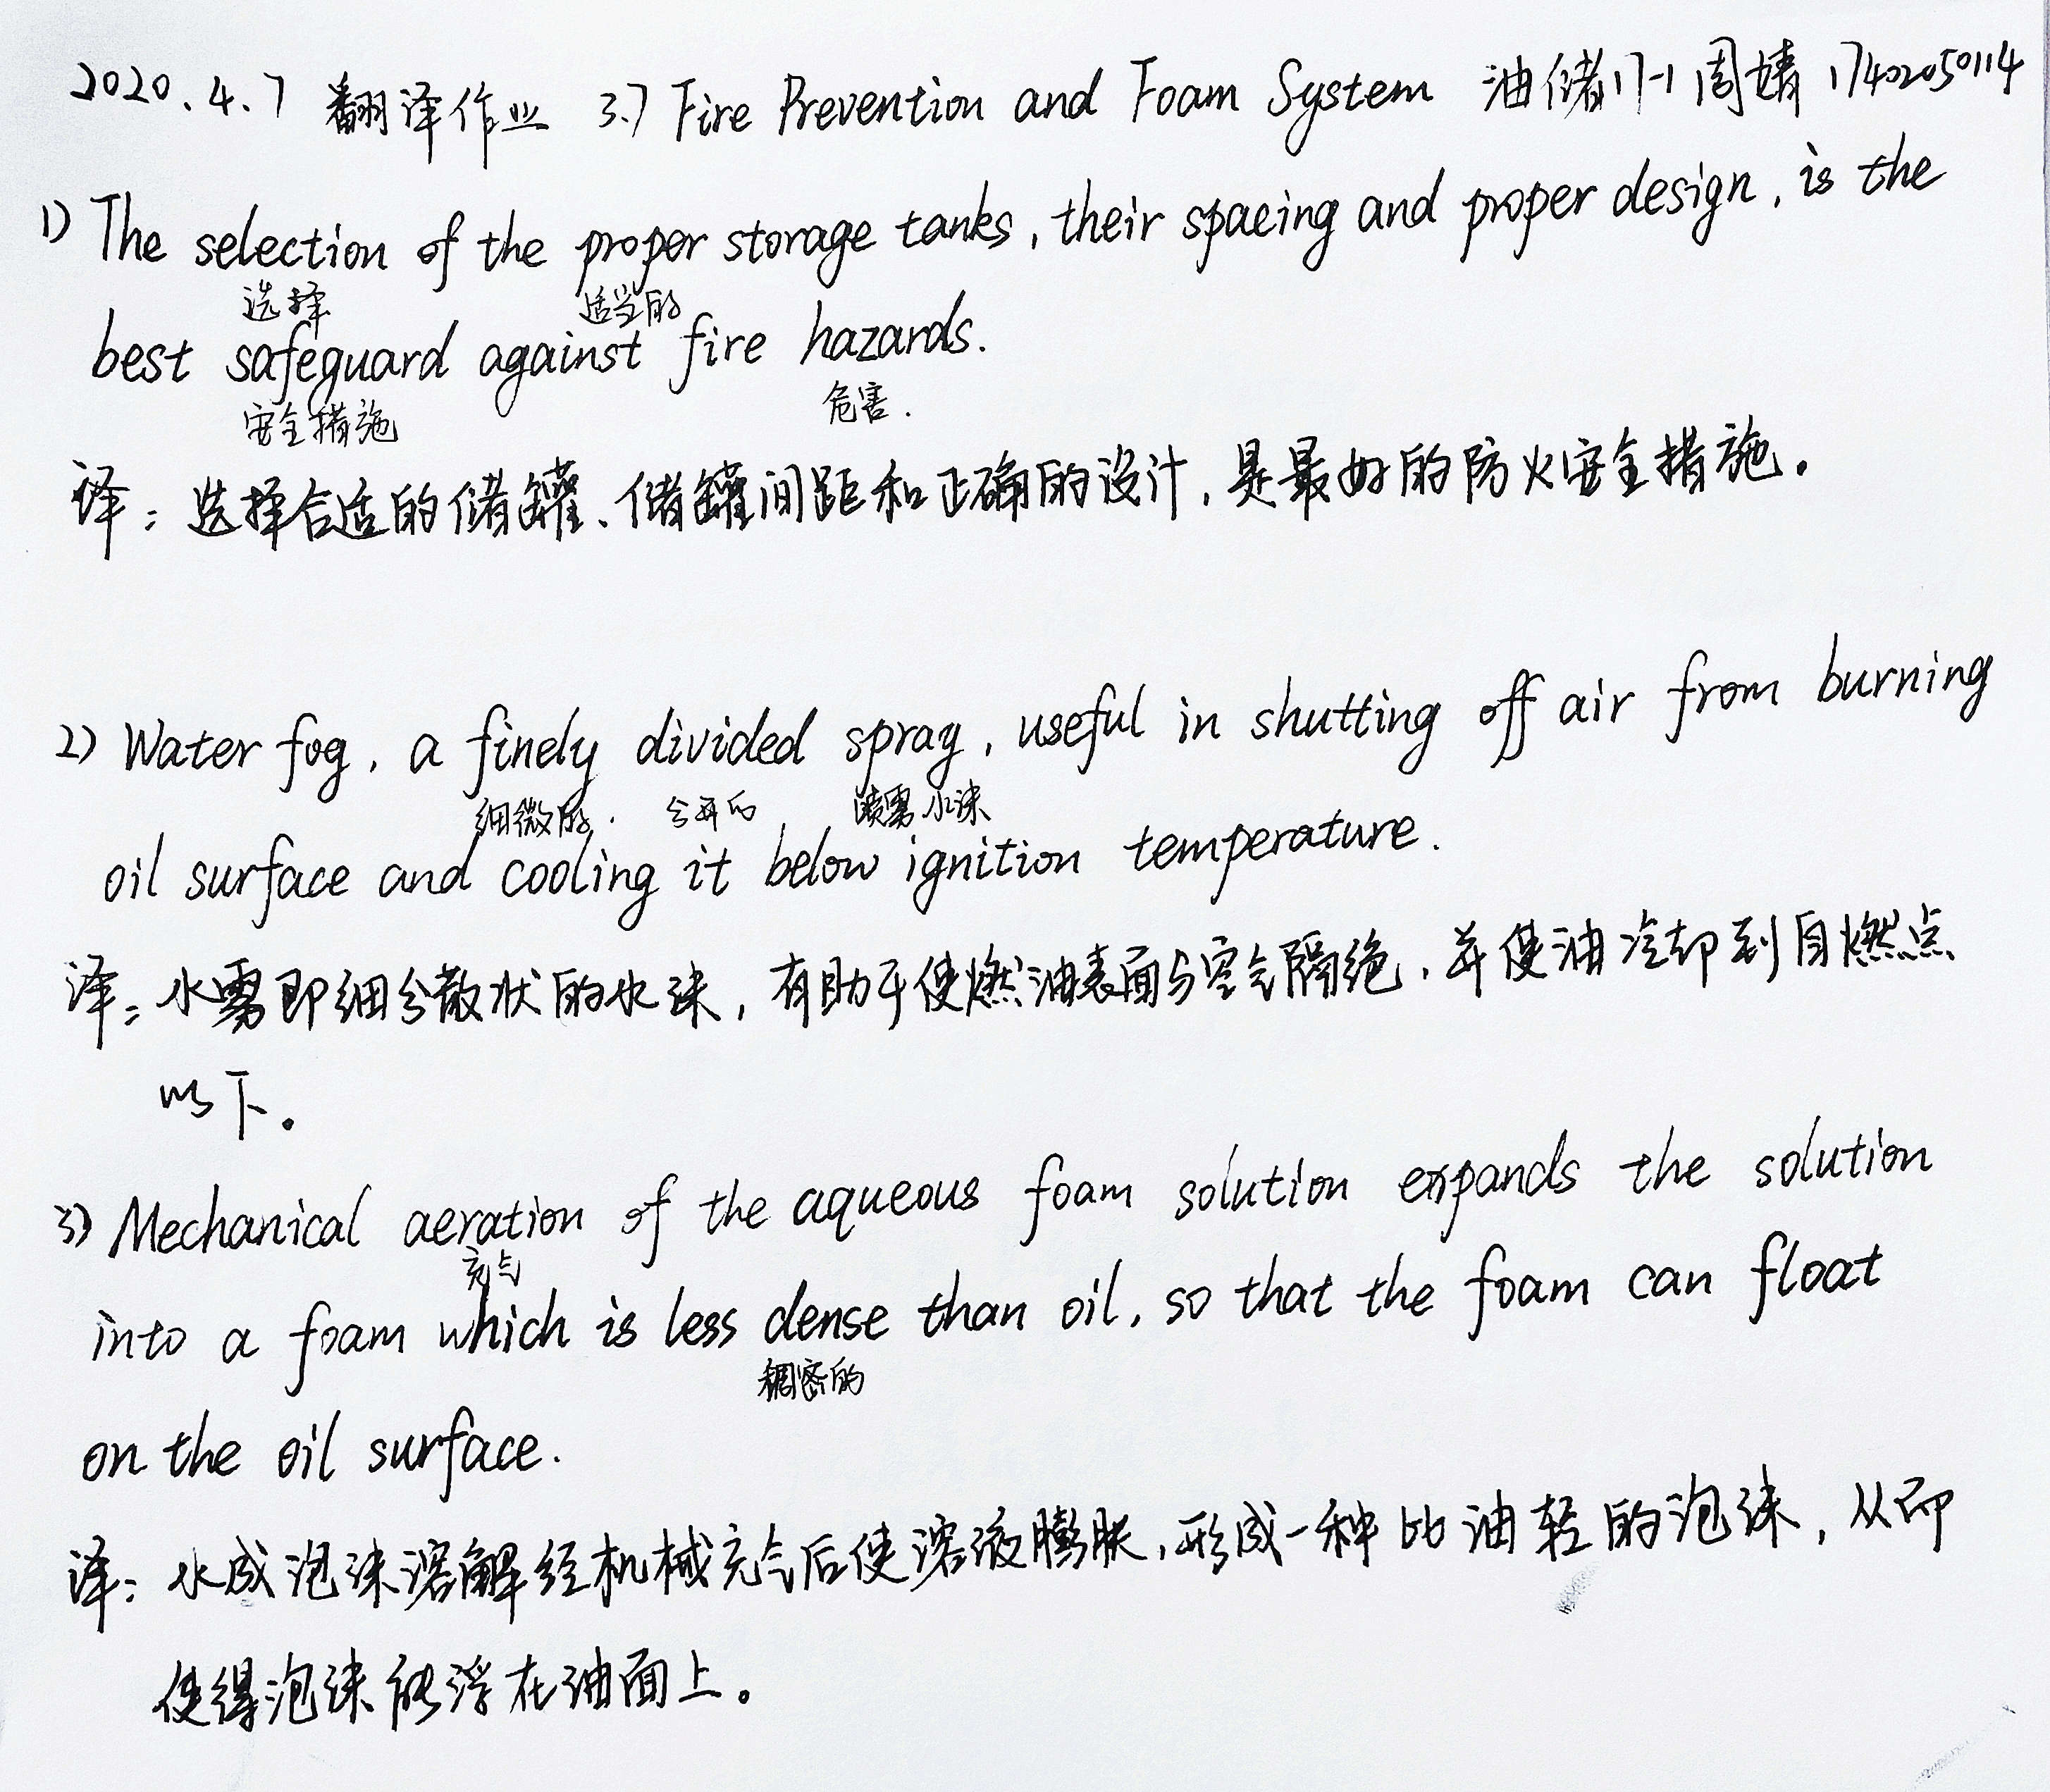 2020.4.7 翻译作业 3.7 Fire Prevention and Foam System 油储17-1 周婧 17402050114
1) The selection of the proper storage tanks, their spacing and proper design, is the
选择 适当的
best safeguard against fire hazards.
安全措施 危害.
译: 选择合适的储罐、储罐间距和正确的设计, 是最好的防火安全措施。
2) Water fog, a finely divided spray, useful in shutting off air from burning
细微的. 分开的, 喷雾 水沫
oil surface and cooling it below ignition temperature.
译: 水雾即细分散状的水沫, 有助于使燃油表面与空气隔绝, 并使油冷却到自燃点
以下。
3) Mechanical aeration of the aqueous foam solution expands the solution
充气
into a foam which is less dense than oil, so that the foam can float
稠密的
on the oil surface.
译: 水成泡沫溶解经机械充气后使溶液膨胀, 形成一种比油轻的泡沫, 从而
使得泡沫能浮在油面上。